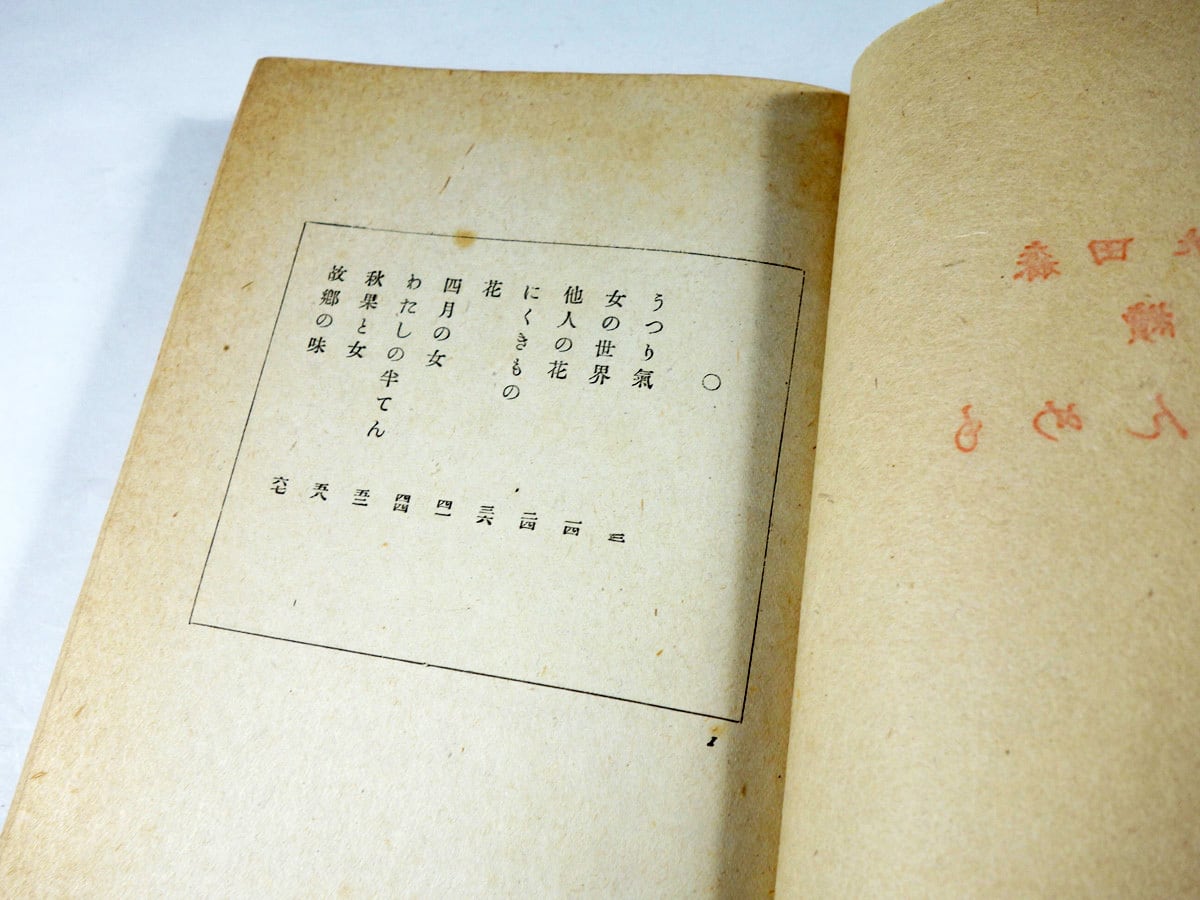 ○
うつり氣 三
女の世界 一四
他人の花 二四
にくきもの 三六
花 四一
四月の女 四四
わたしの半てん 五二
秋果と女 五八
故鄕の味 六七
1
森田
續
もめん